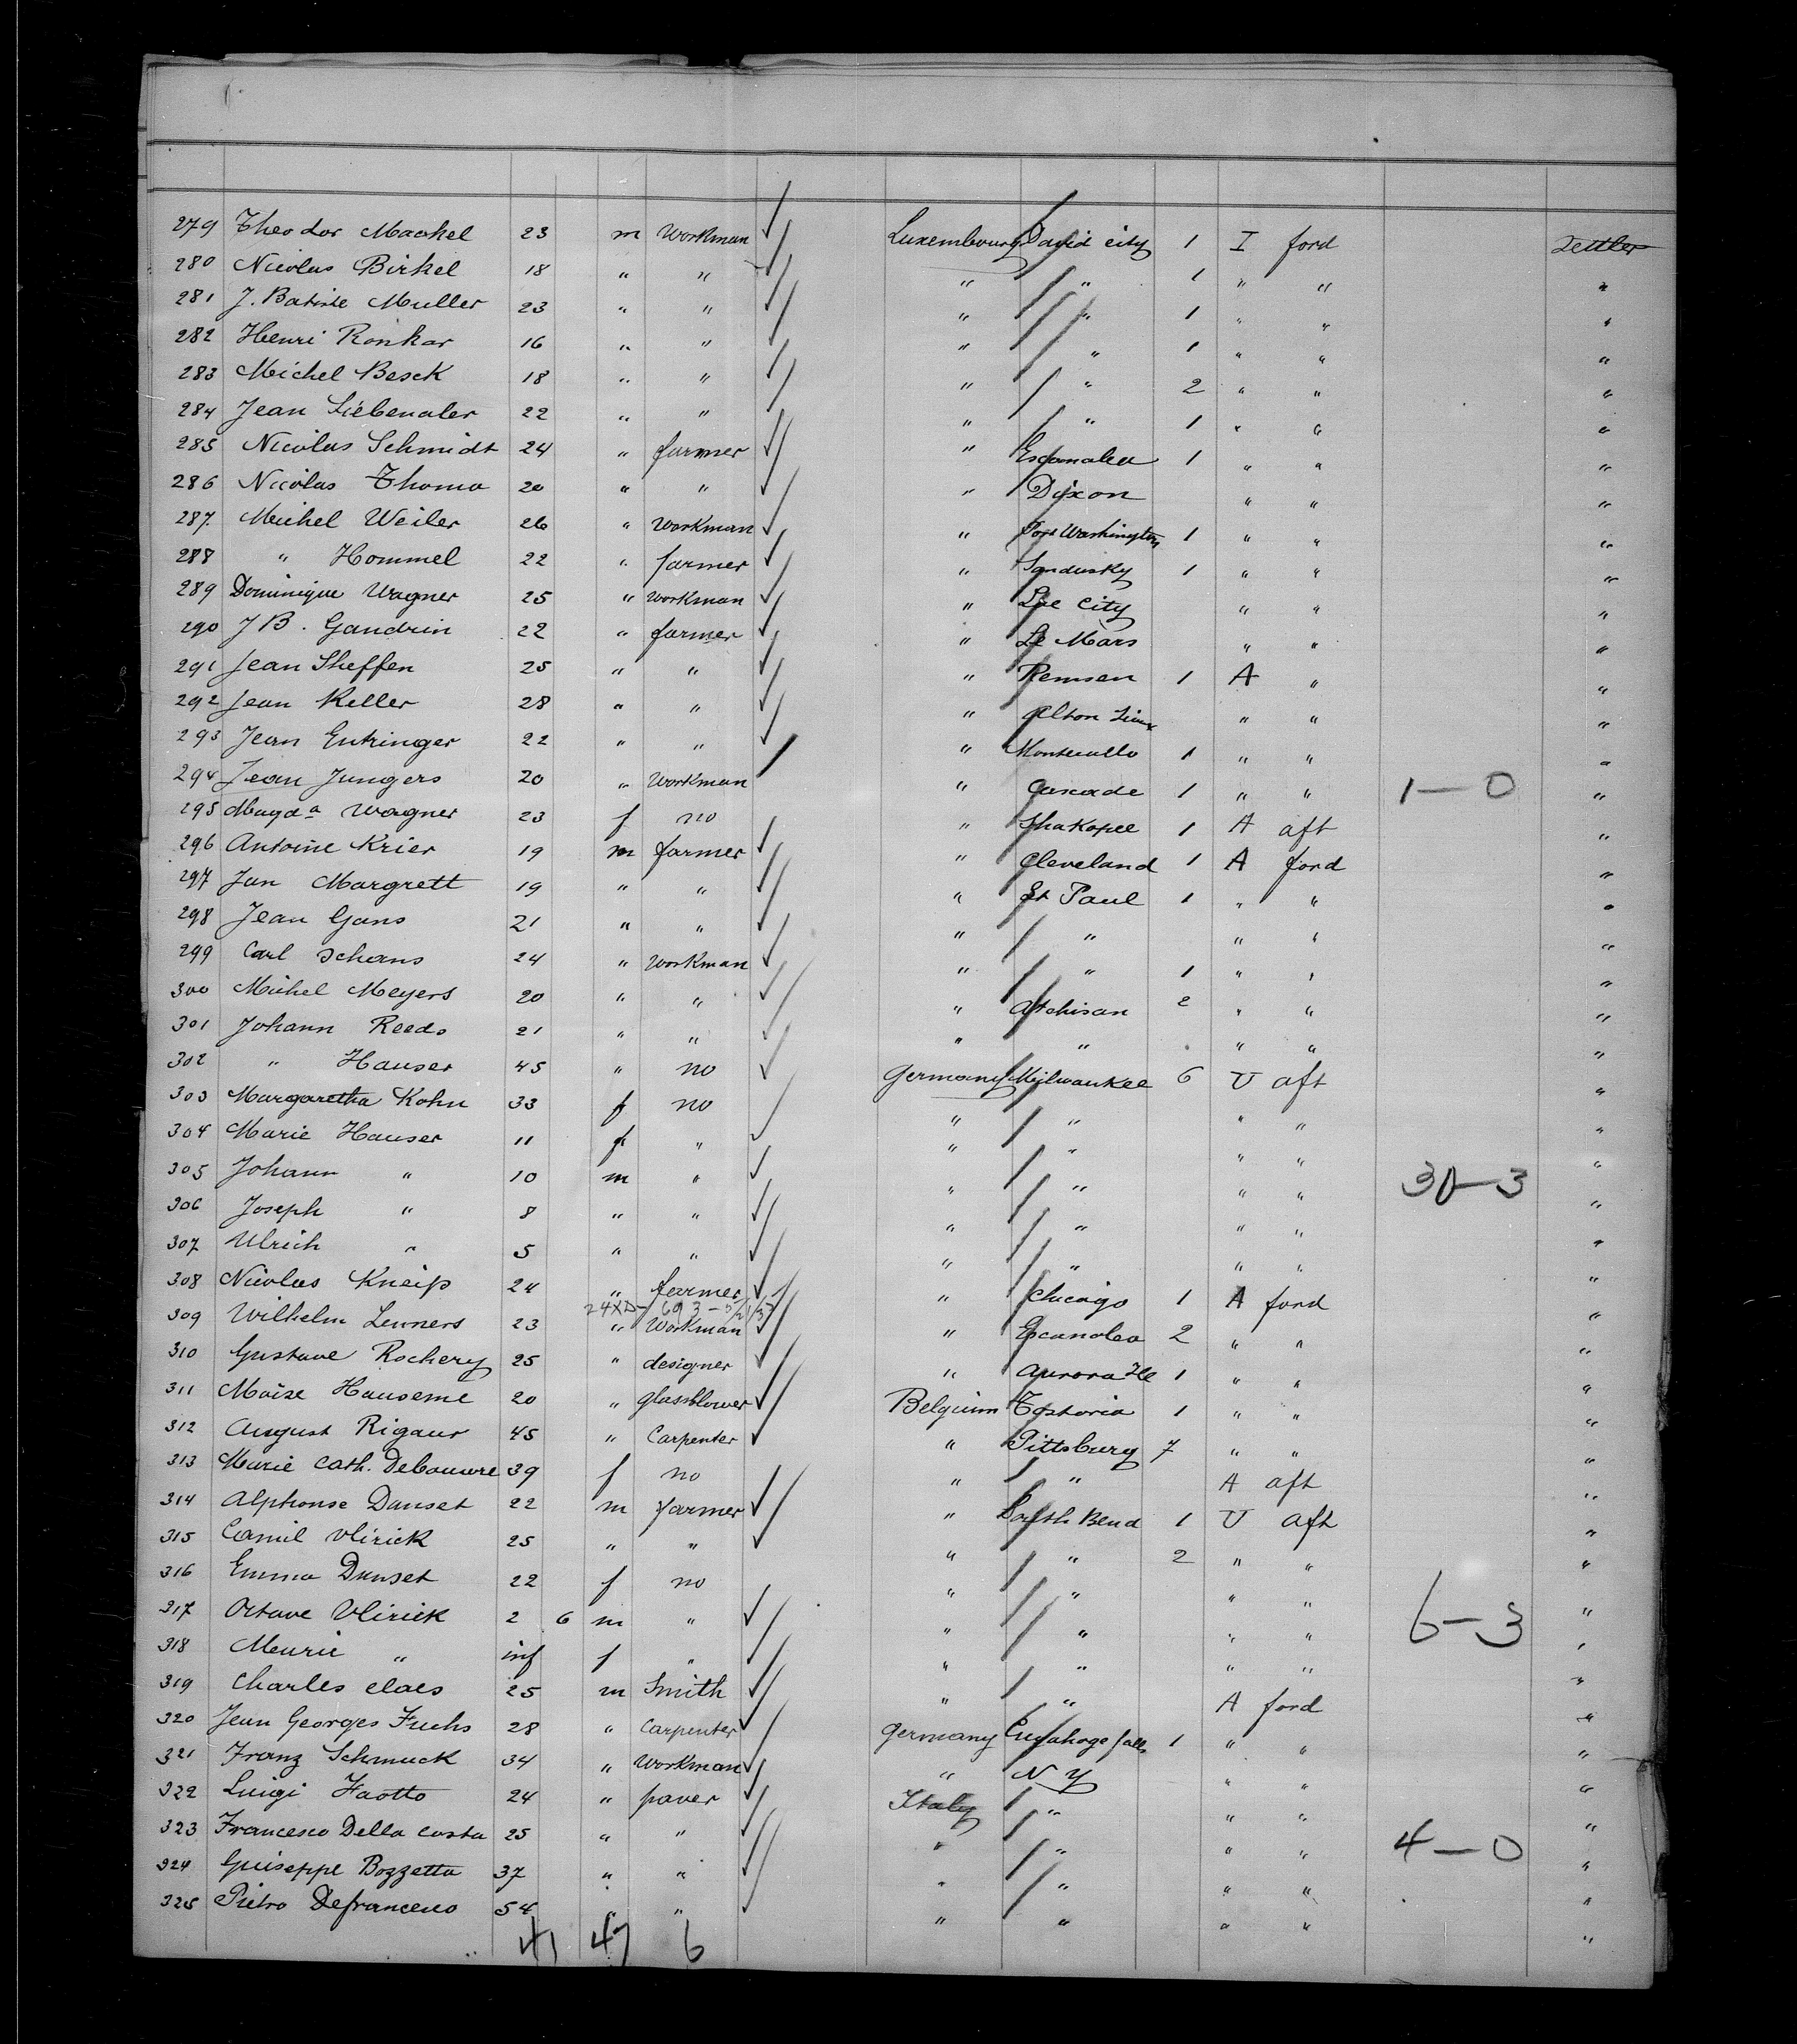 279 Theodor Mackel 23 m Workman Luxembourg David city 1 I ford Settler
280 Nicolas Birkel 18 " " " " 1 " " "
281 J. Batiste Muller 23 " " " " 1 " " "
282 Henri Ronkar 16 " " " " 1 " " "
283 Michel Besck 18 " " " " 2 " " "
284 Jean Liebenaler 22 " " " " 1 " " "
285 Nicolas Schmidt 24 " farmer " Escanaba 1 " " "
286 Nicolas Thoma 20 " " " Dixon " " "
287 Michel Weiler 26 " Workman " Port Washington 1 " " "
288 " Hommel 22 " farmer " Sandusky 1 " " "
289 Dominique Wagner 25 " Workman " City " " "
290 J B. Gandrin 22 " farmer " Le Mars " " "
291 Jean Steffen 25 " " " Remsen 1 A " "
292 Jean Keller 28 " " " Alton Sioux " " "
293 Jean Entringer 22 " " " Monticello 1 " " "
294 Jean Jungers 20 " Workman " Cascade 1 " " 1—0 "
295 Magda Wagner 23 f no " Shakopee 1 A aft "
296 Antoine Krier 19 m farmer " Cleveland 1 A ford "
297 Jan Margrett 19 " " " St Paul 1 " " "
298 Jean Gans 21 " " " " " " "
299 Carl Schans 24 " Workman " " 1 " " "
300 Michel Meyers 20 " " " Atchison 2 " " "
301 Johann Reeds 21 " " " " " " "
302 " Hauser 45 " no Germany Milwaukee 6 U aft "
303 Margaretha Kohn 33 f no " " " " "
304 Marie Hauser 11 f " " " " " "
305 Johann " 10 m " " " " " 30—3 "
306 Joseph " 8 " " " " " " "
307 Ulrich " 5 " " " " " " "
308 Nicolas Kneip 24 " farmer " Chicago 1 A ford "
24XD-693-5/21/37
309 Wilhelm Lenners 23 " Workman " Escanaba 2 " " "
310 Gustave Rochery 25 " designer " Aurora Ill 1 " " "
311 Moïse Hauseme 20 " glassblower Belgium Fostoria 1 " " "
312 August Rigaux 45 " Carpenter " Pittsburg 7 " " "
313 Marie Cath. Debouvre 39 f no " " A aft "
314 Alphonse Danset 22 m farmer " South Bend 1 U aft "
315 Camil Vlirick 25 " " " " 2 " " "
316 Emma Danset 22 f no " " " " "
317 Octave Vlirick 2 6 m " " " " " 6—3 "
318 Meurie " inf f " " " " " "
319 Charles Claes 25 m Smith " " A ford "
320 Jean Georges Fuchs 28 " Carpenter Germany Cuyahoga falls 1 " " "
321 Franz Schmuck 34 " Workman " N Y " " "
322 Luigi Faotto 24 " paver Italy " " " "
323 Francesco Della Costa 25 " " " " " " 4—0 "
324 Guiseppe Bozzetta 37 " " " " " " "
325 Pietro Defrancesco 54 " " " " " " "
41 47 6